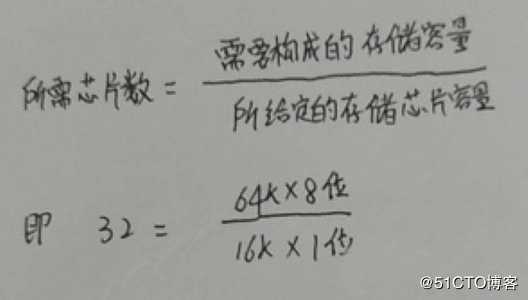 需要构成的存储容量
所需芯片数 =
所给定的存储芯片容量
64K×8位
即 32 =
16K×1位
@51CTO博客